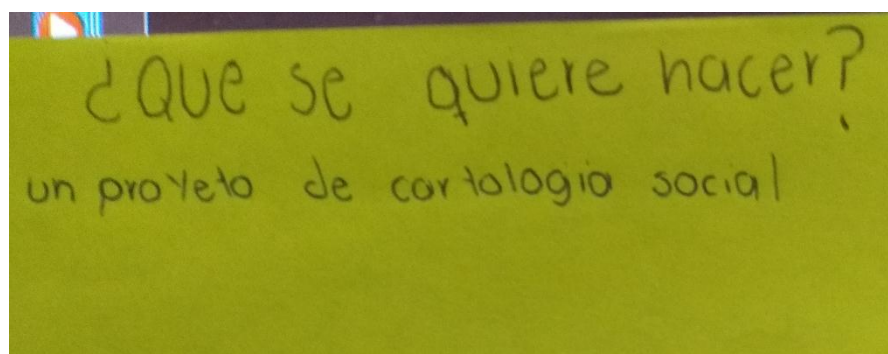 ¿Que se quiere hacer?
un proyeto de cartologia social